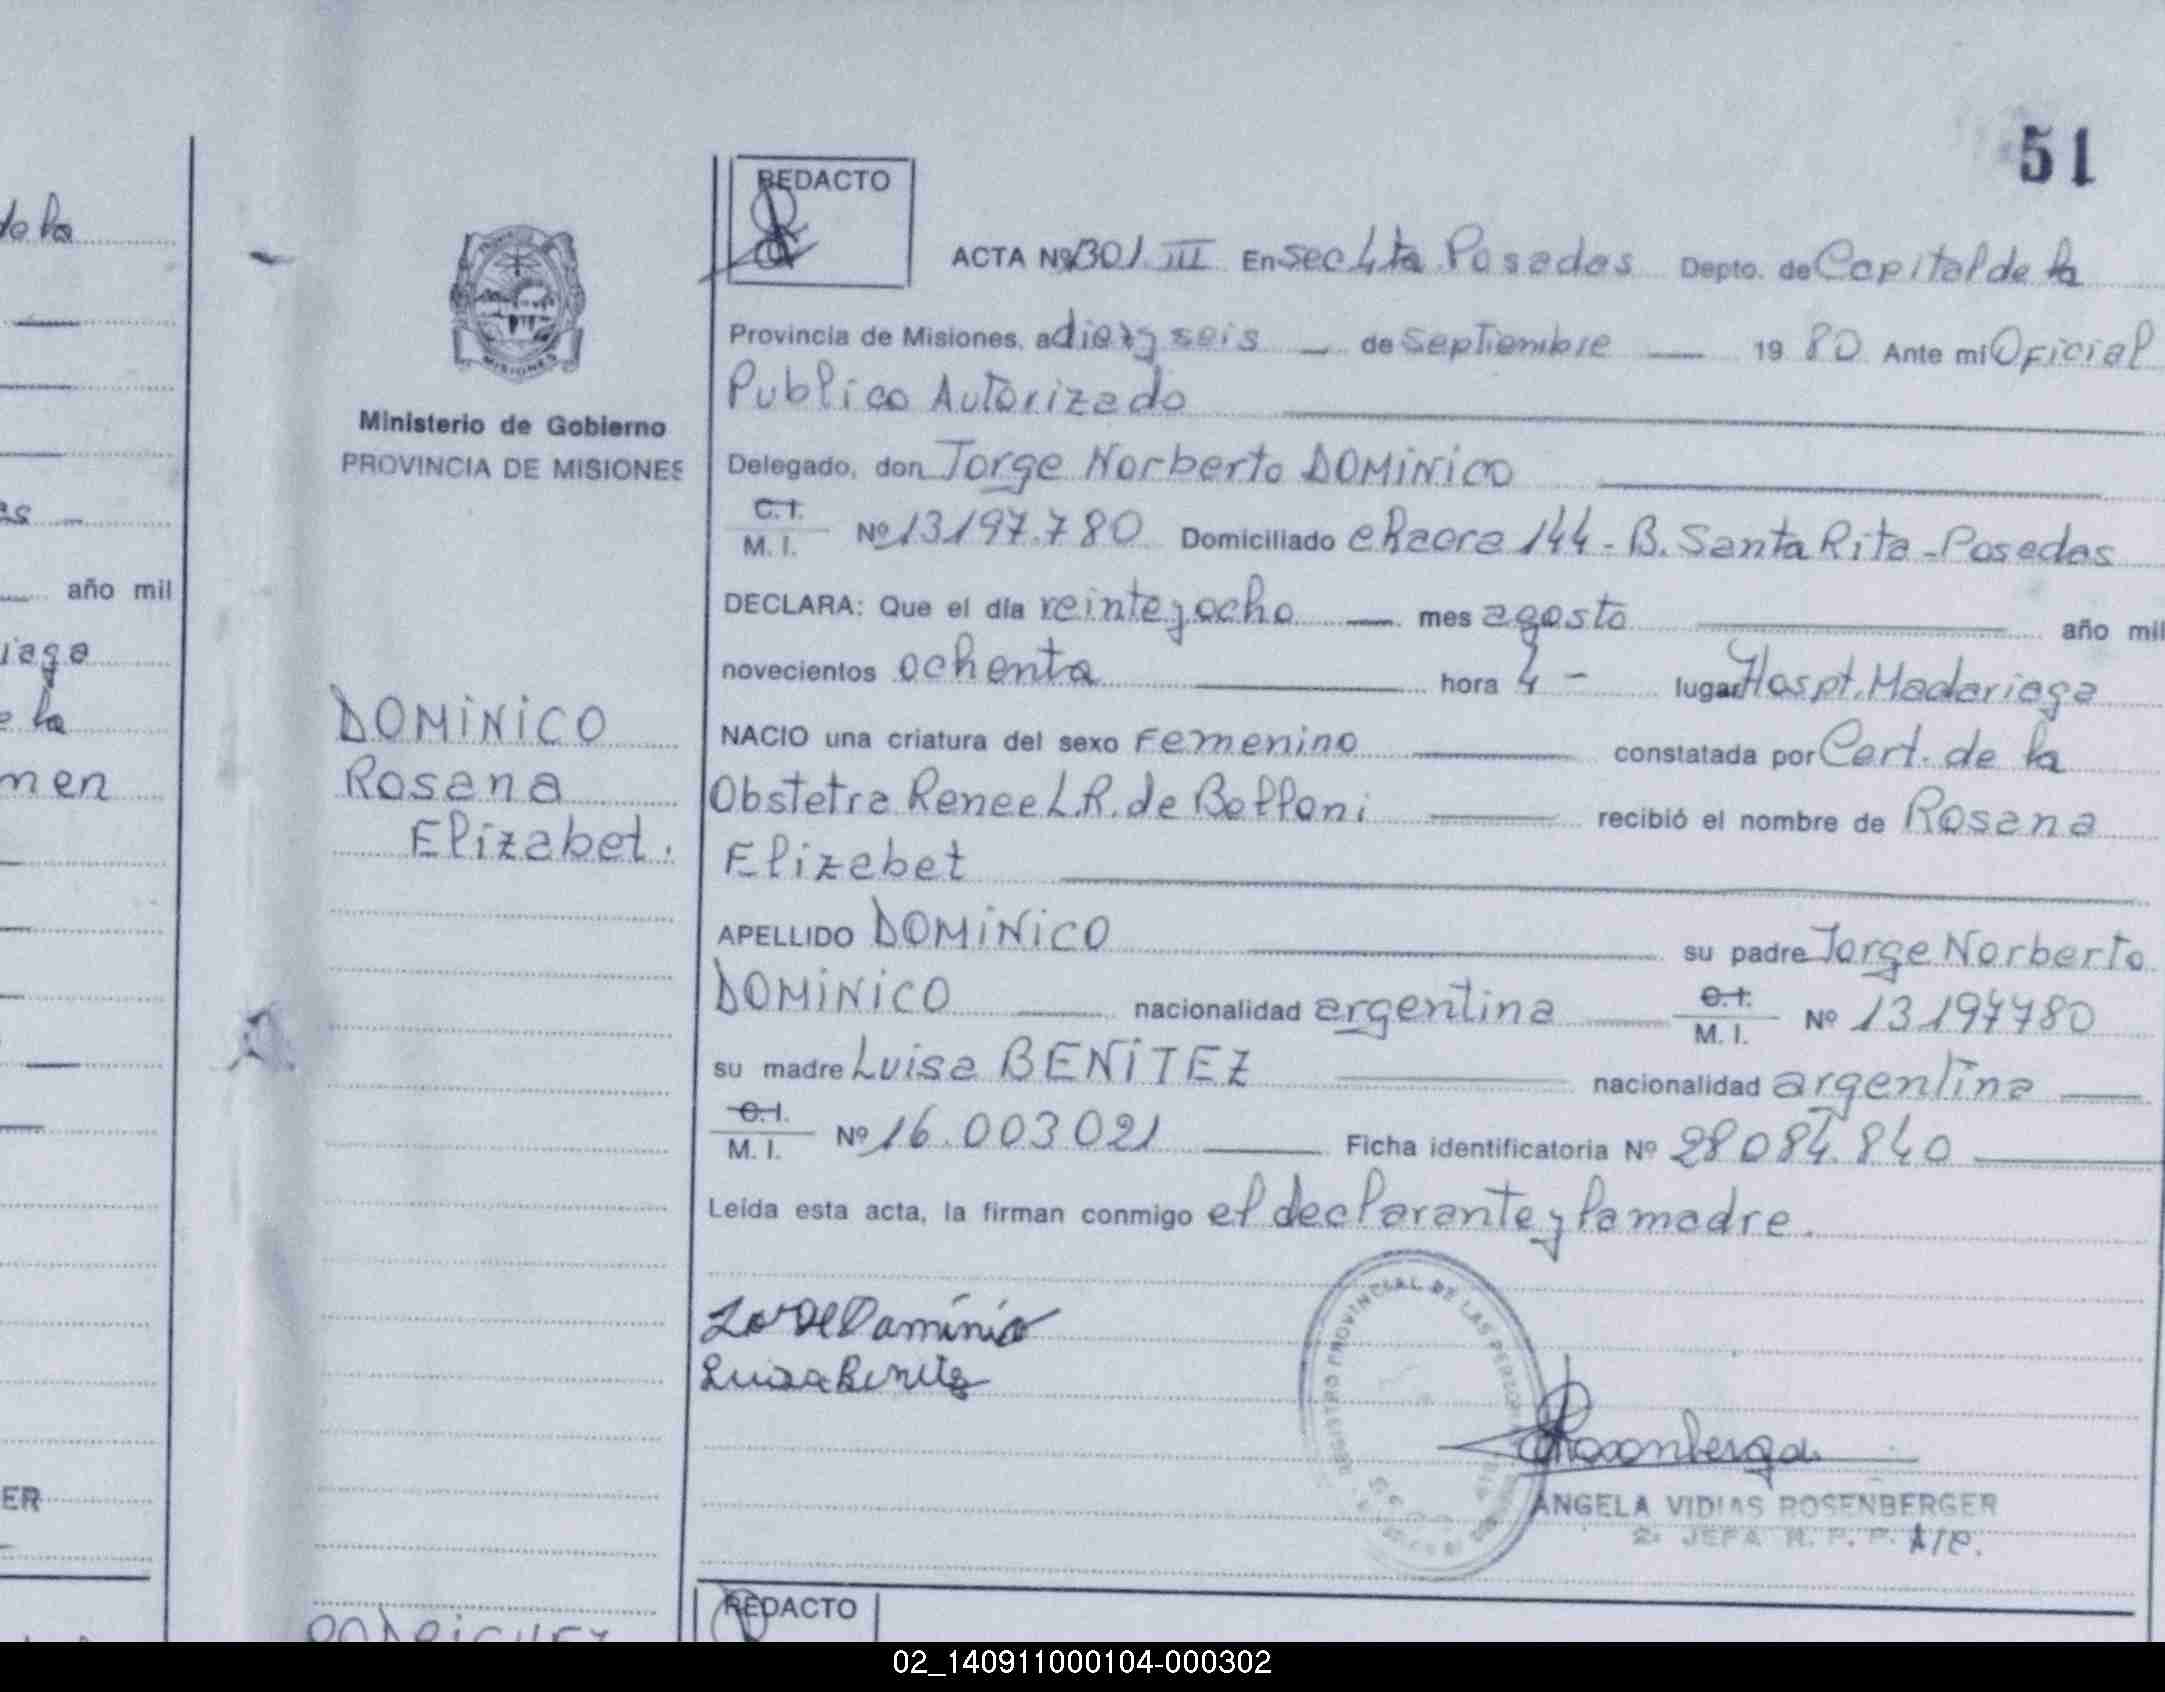 51
de la
REDACTO
ACTA Nº 1301 III En Sec 4ta Posadas Depto. de Capital de la
Provincia de Misiones, a diez y seis — de Septiembre — 19 80 Ante mi Oficial
Publico Autorizado
Ministerio de Gobierno
PROVINCIA DE MISIONES
MISIONES
Delegado, don Jorge Norberto DOMINICO
C.I.
M. I. Nº 13197.780 Domiciliado chacra 144 - B. Santa Rita - Posadas
año mil
DECLARA: Que el día veinte y ocho — mes agosto año mil
novecientos ochenta hora 4 - lugar Hospt. Madariaga
DOMINICO
Rosana
Elizabet.
NACIO una criatura del sexo Femenino constatada por Cert. de la
Obstetra Renee L.R. de Belloni recibió el nombre de Rosana
Elizabet
APELLIDO DOMINICO su padre Jorge Norberto
DOMINICO nacionalidad argentina C.I.
M. I. Nº 13197780
su madre Luisa BENITEZ nacionalidad argentina
C.I.
M. I. Nº 16.003021 Ficha identificatoria Nº 28084.840
Leída esta acta, la firman conmigo el declarante y la madre.
Luisa Benitez
REGISTRO PROVINCIAL DE LAS PERSONAS
ANGELA VIDIAS ROSENBERGER
2: JEFA R. P. P. A/C.
ER
REDACTO
RODRIGUEZ
02_140911000104-000302